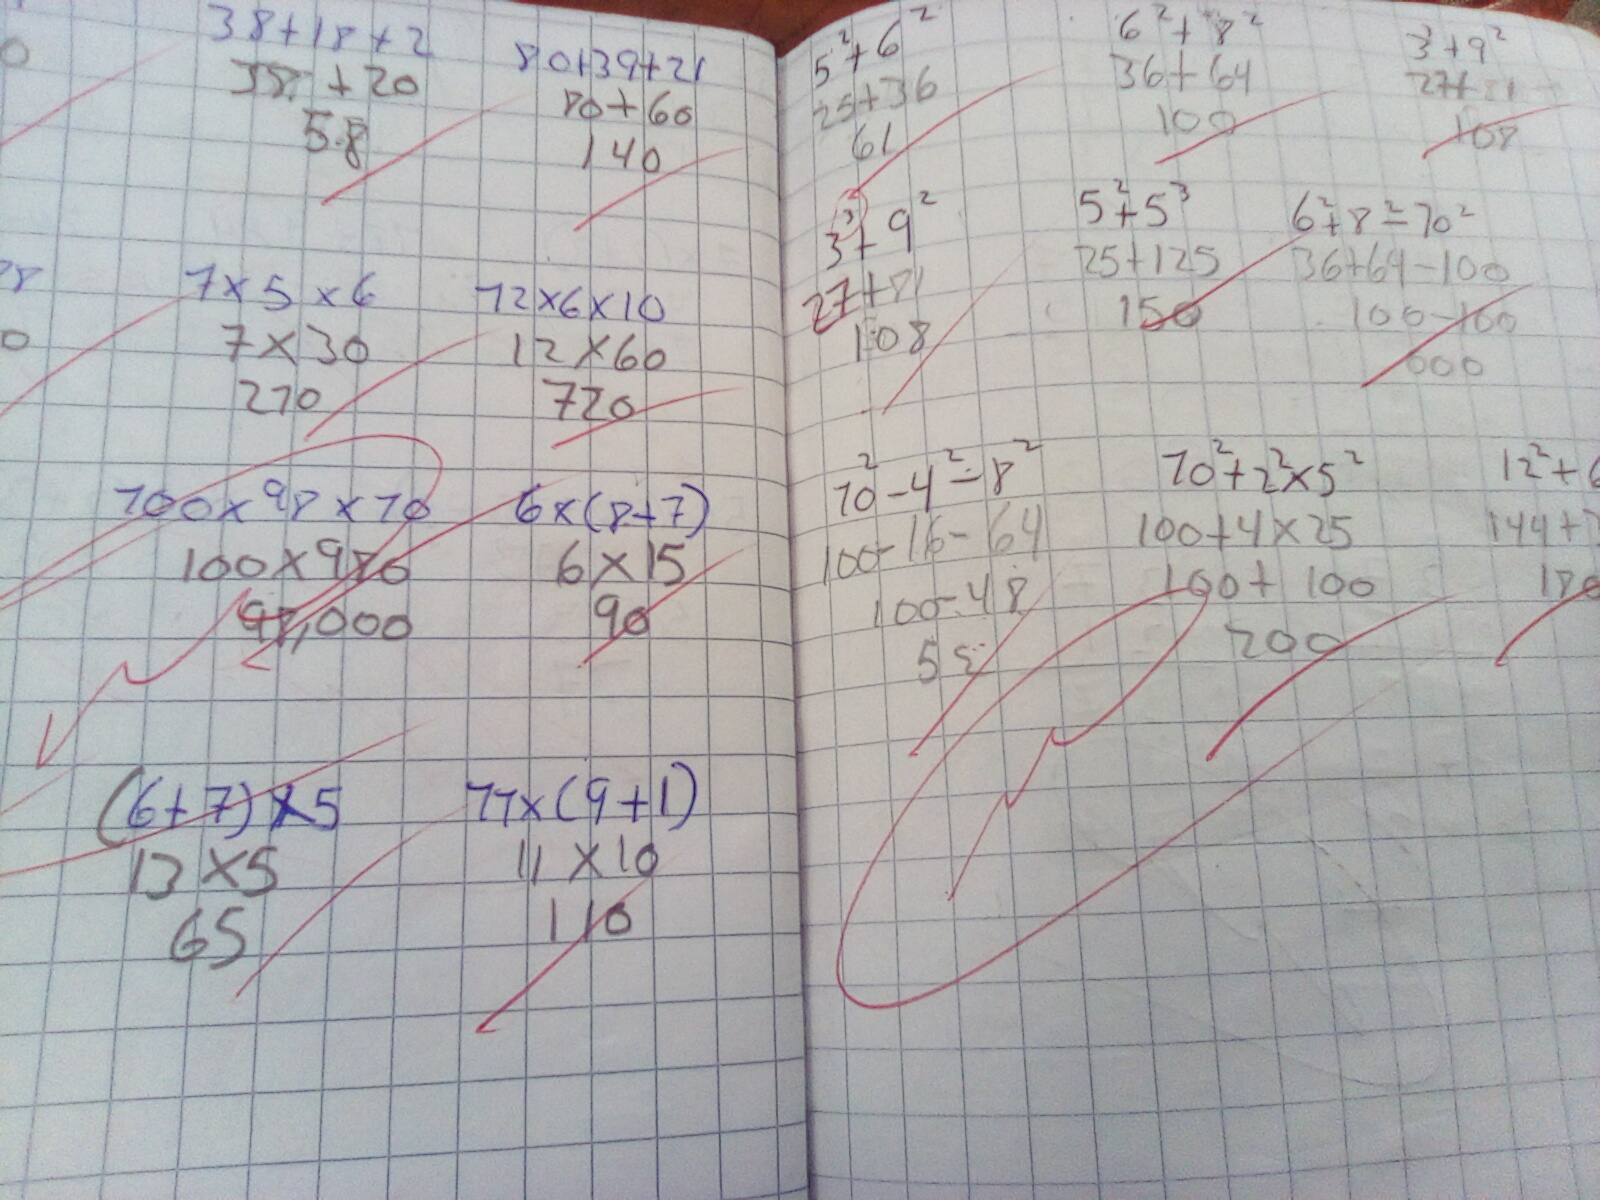 38+18+2
38+20
58
80+39+21
80+60
140
7×5×6
7×30
270
12×6×10
12×60
720
100×98×10
100×980
98,000
6×(8+7)
6×15
90
(6+7)×5
13×5
65
11×(9+1)
11×10
110
5²+6²
25+36
61
6²+8²
36+64
100
3³+9²
27+81
108
3³+9²
27+81
108
5²+5³
25+125
150
6²+8²-10²
36+64-100
100-100
000
10²-4²-8²
100-16-64
100-48
10²+2²×5²
100+4×25
100+100
200
12²+6
144+3
180